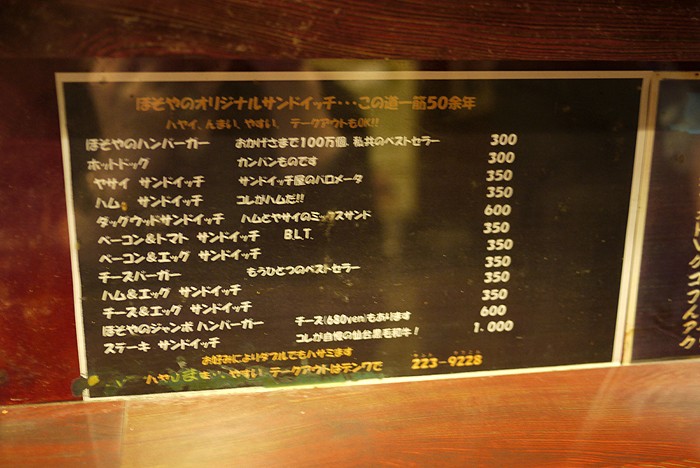 ほそやのオリジナルサンドイッチ・・・この道一筋50余年
ハヤイ、んまい、やすい、テークアウトもOK!!
ほそやのハンバーガー おかげさまで100万個、私共のベストセラー 300
ホットドッグ カンバンものです 300
ヤサイ サンドイッチ サンドイッチ屋のバロメータ 350
ハム サンドイッチ コレがハムだ!! 350
ダッグウッドサンドイッチ ハムとヤサイのミックスサンド 600
ベーコン&トマト サンドイッチ B.L.T. 350
ベーコン&エッグ サンドイッチ 350
チーズバーガー もうひとつのベストセラー 350
ハム&エッグ サンドイッチ 350
チーズ&エッグ サンドイッチ 350
ほそやのジャンボ ハンバーガー チーズ(680yen)もあります 600
ステーキ サンドイッチ コレが自慢の仙台黒毛和牛! 1,000
お好みによりダブルでもハサミます
ハヤ やすい テークアウトはデンワで 223-9228